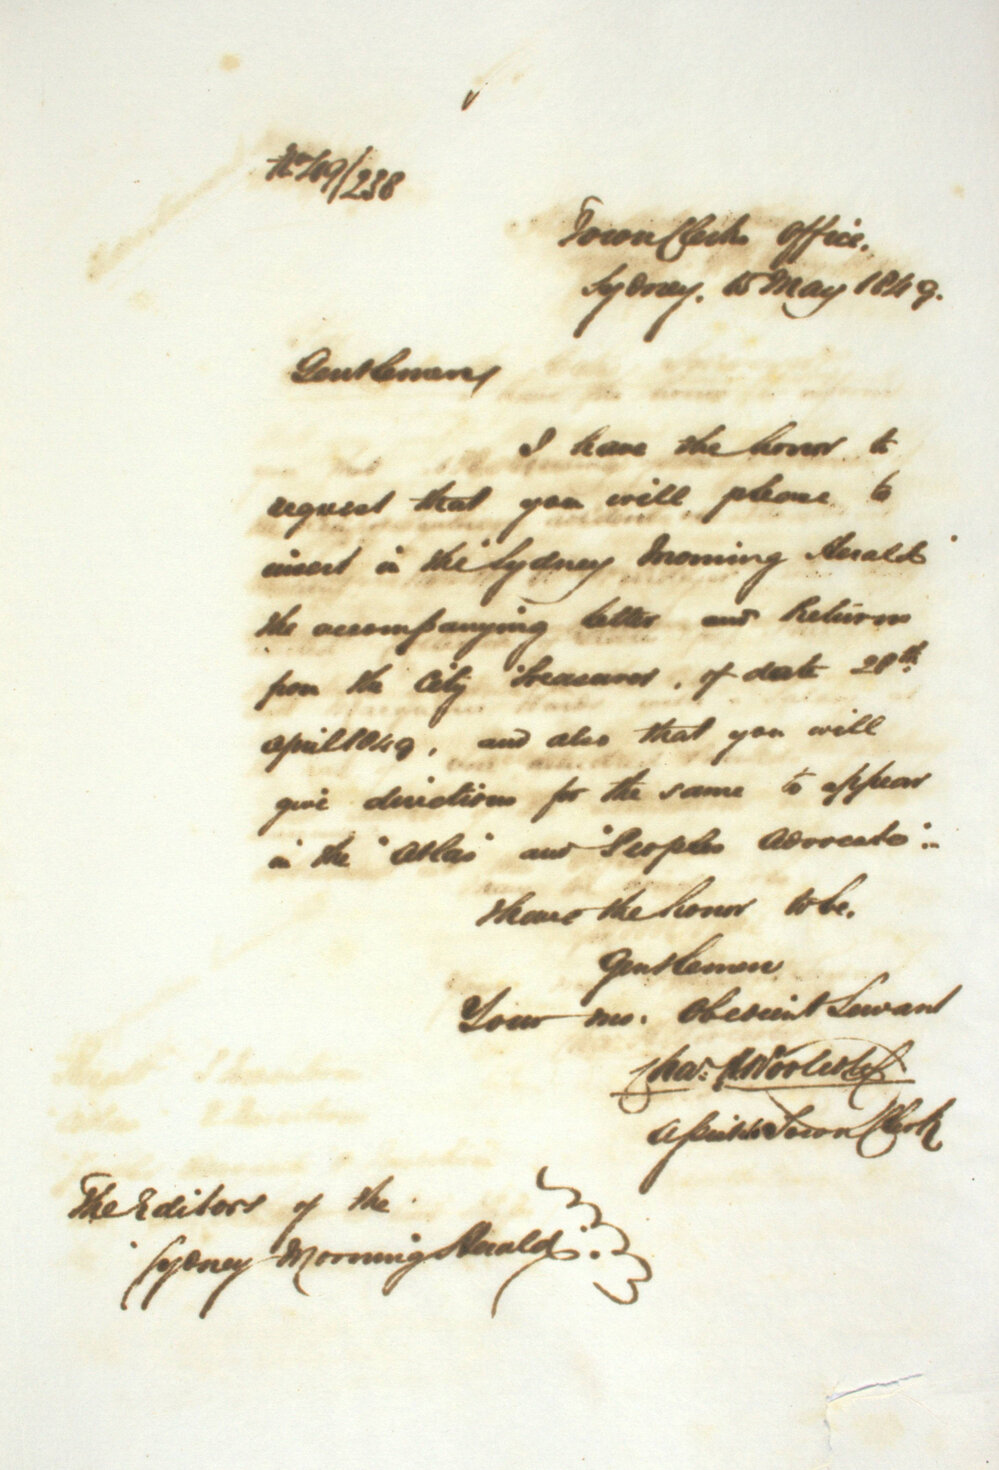 No 49/238
Town Clerks Office.
Sydney. 15 May 1849.
Gentlemen,
I have the honor to
request that you will please to
insert in the "Sydney Morning Herald"
the accompanying letter and Returns
from the City Treasurer, of date 28th
April 1849, and also that you will
give directions for the same to appear
in the "Atlas" and "Peoples Advocate".
I have the honor to be.
Gentlemen
Your mo. Obedient Servant
Chas. H. Woolcott
Assistt Town Clerk
The Editors of the
"Sydney Morning Herald".